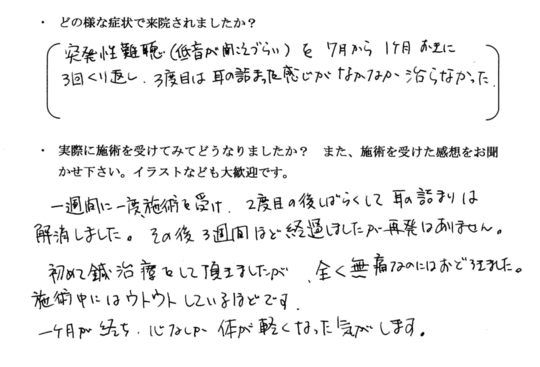 ・ どの様な症状で来院されましたか？
突発性難聴（低音が聞こえづらい）を 7月から 1ヶ月おきに
3回くり返し、3度目は耳の詰まった感じがなかなか治らなかった。
・ 実際に施術を受けてみてどうなりましたか？ また、施術を受けた感想をお聞
かせ下さい。イラストなども大歓迎です。
一週間に一度施術を受け、2度目の後しばらくして耳の詰まりは
解消しました。その後3週間ほど経過しましたが再発はありません。
初めて鍼治療をして頂きましたが、全く無痛なのにはおどろきました。
施術中にはウトウトしているほどです。
一ヶ月が経ち、心なしか体が軽くなった気がします。